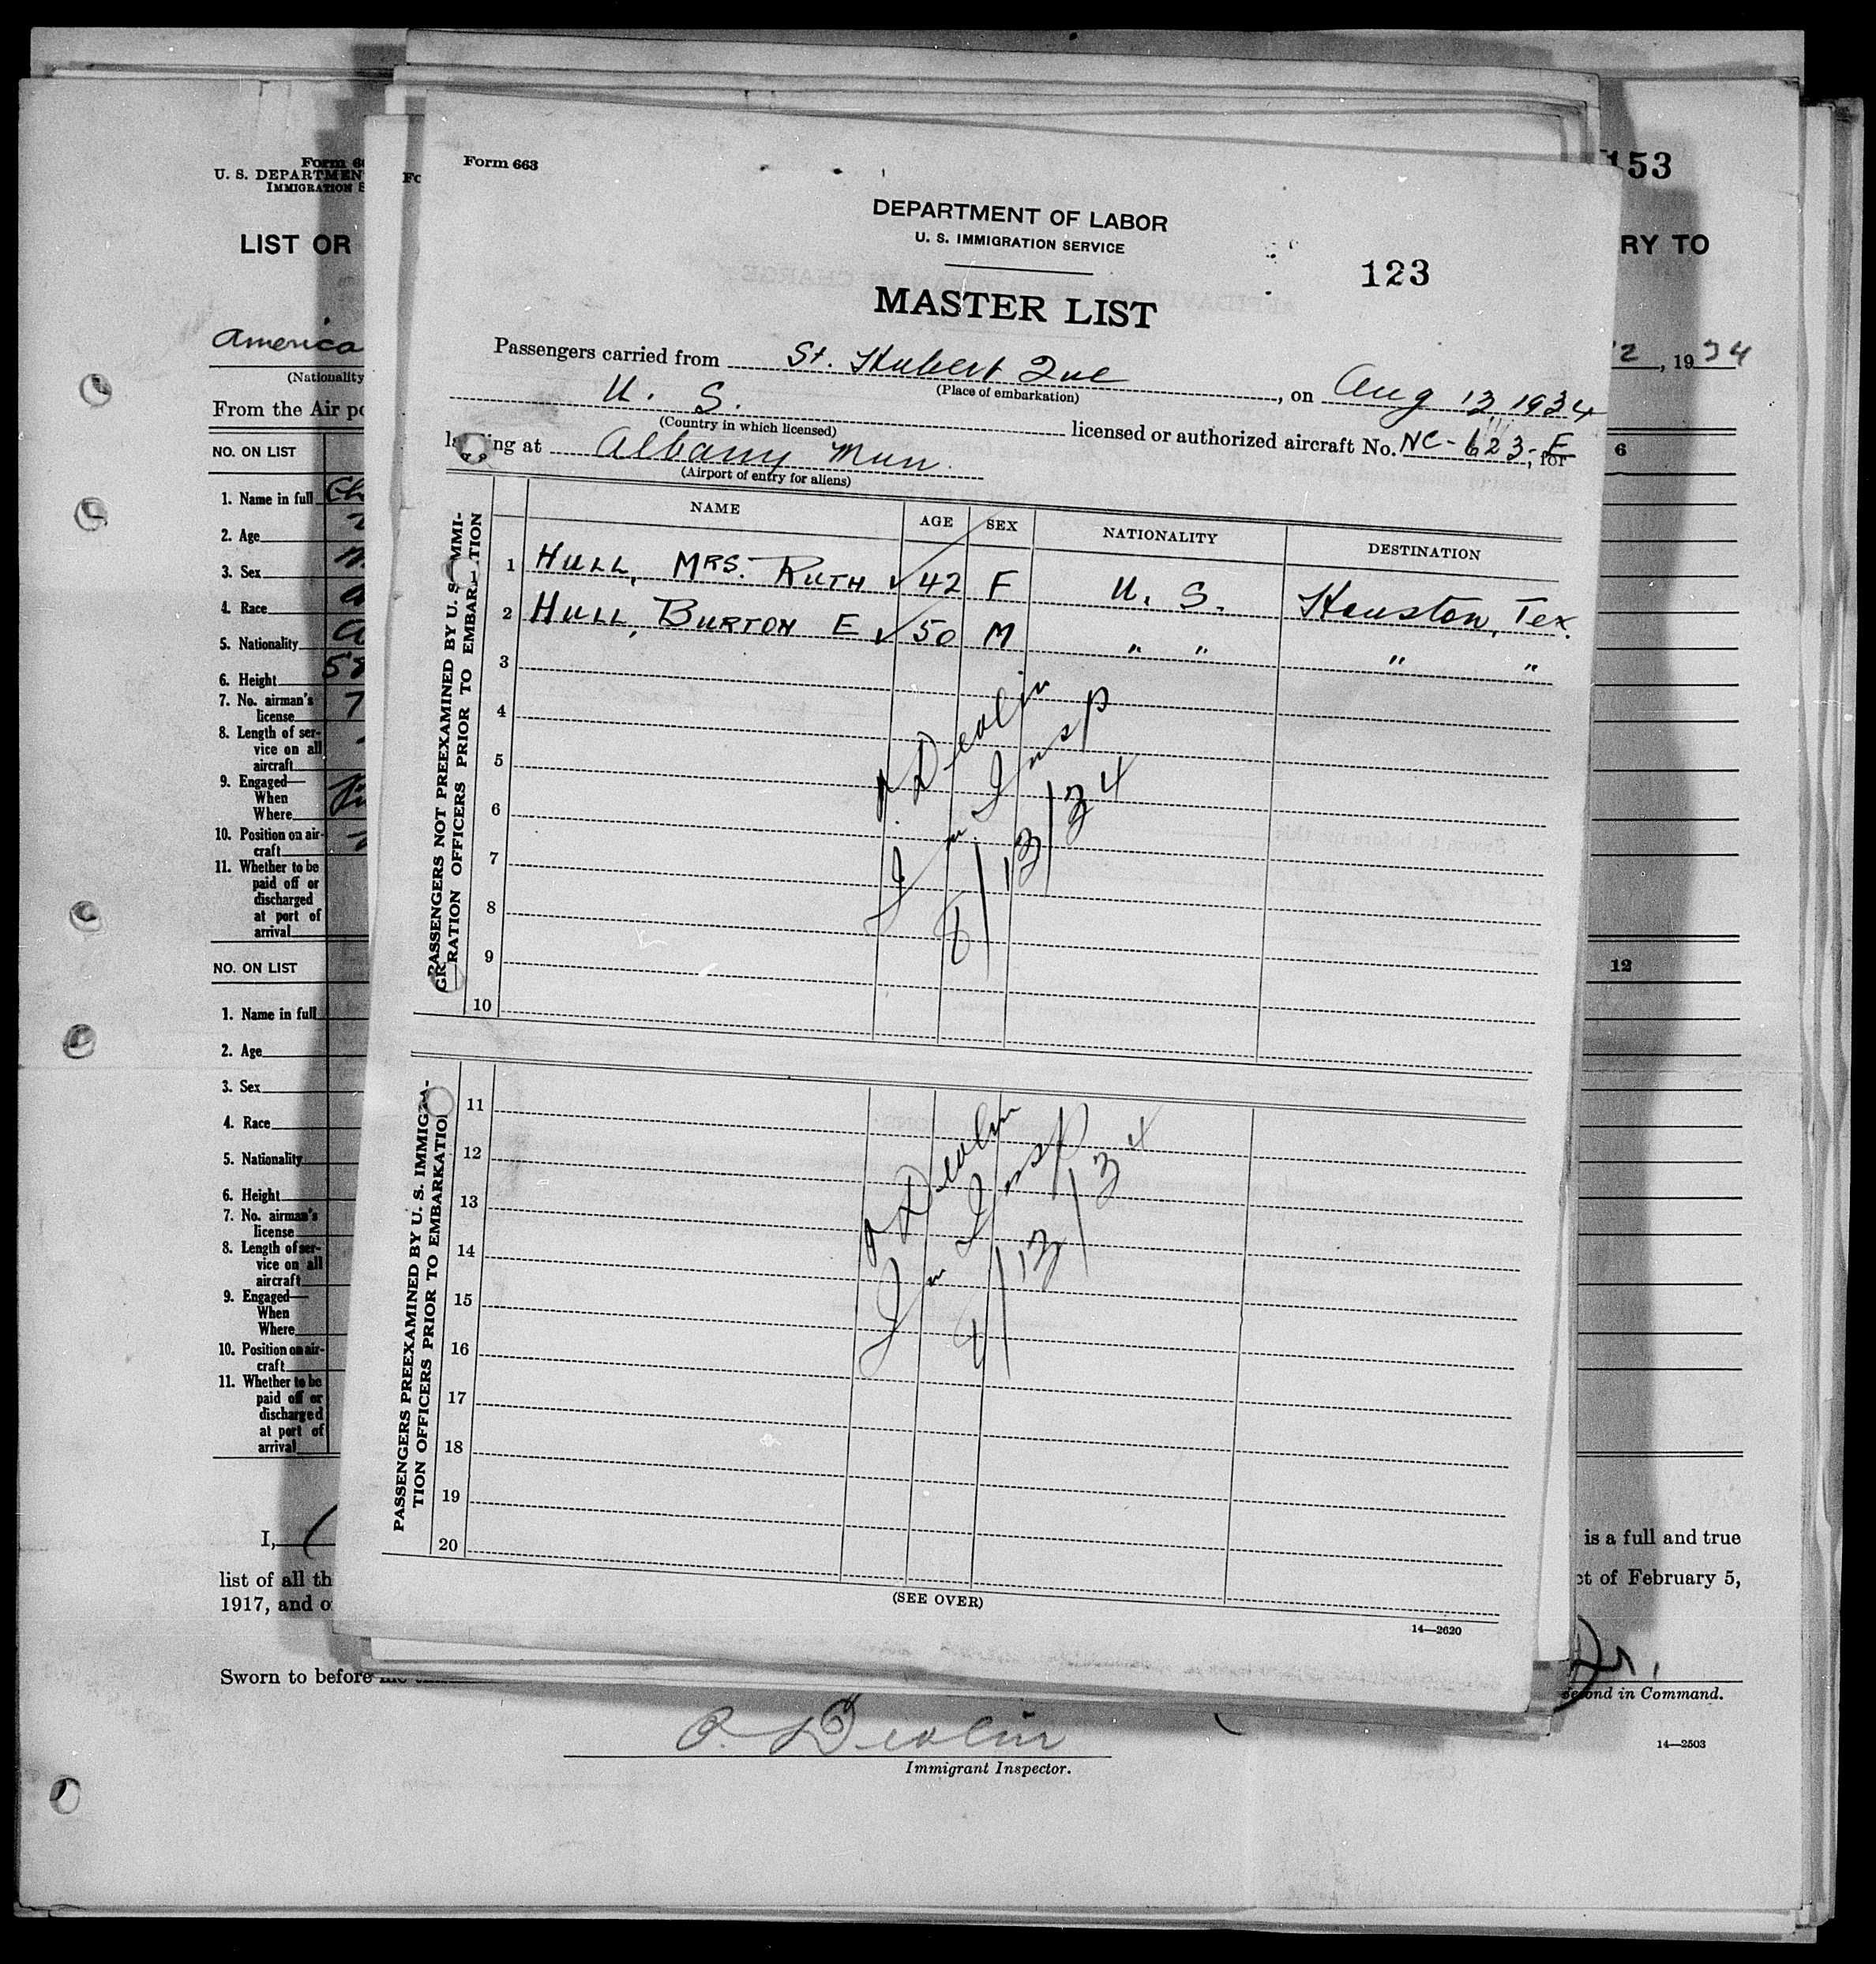 Form 663
DEPARTMENT OF LABOR
U. S. IMMIGRATION SERVICE
123
MASTER LIST
Passengers carried from St. Hubert Que, on Aug 13, 1934
(Place of embarkation)
U. S. licensed or authorized aircraft No. NC-623-E, for
(Country in which licensed)
landing at Albany Mun.
(Airport of entry for aliens)
NAME AGE SEX NATIONALITY DESTINATION
PASSENGERS NOT PREEXAMINED BY U. S. IMMI-
GRATION OFFICERS PRIOR TO EMBARKATION
1 HULL, MRS. RUTH ✓ 42 F U. S. Houston, Tex.
2 HULL, BURTON E ✓ 50 M " " " "
3
4
5
6
7
8
9
10
Devlin
Im Insp
8/13/34
PASSENGERS PREEXAMINED BY U. S. IMMIGRA-
TION OFFICERS PRIOR TO EMBARKATION
11
12
13
14
15
16
17
18
19
20
Devlin
Im Insp
8/13/34
(SEE OVER)
14—2620
Form 6
U. S. DEPARTMEN
IMMIGRATION S
Fo
153
LIST OR
RY TO
America
(Nationality
2, 1934
From the Air po
NO. ON LIST
6
1. Name in full Ch
2. Age
3. Sex
4. Race
5. Nationality
6. Height 58
7. No. airman's
license 7
8. Length of ser-
vice on all
aircraft
9. Engaged—
When
Where
10. Position on air-
craft
11. Whether to be
paid off or
discharged
at port of
arrival
NO. ON LIST
12
1. Name in full
2. Age
3. Sex
4. Race
5. Nationality
6. Height
7. No. airman's
license
8. Length of ser-
vice on all
aircraft
9. Engaged—
When
Where
10. Position on air-
craft
11. Whether to be
paid off or
discharged
at port of
arrival
I,
is a full and true
list of all th
ct of February 5,
1917, and o
Sworn to before me
Jr.
Second in Command.
P. Devlin
Immigrant Inspector.
14—2503